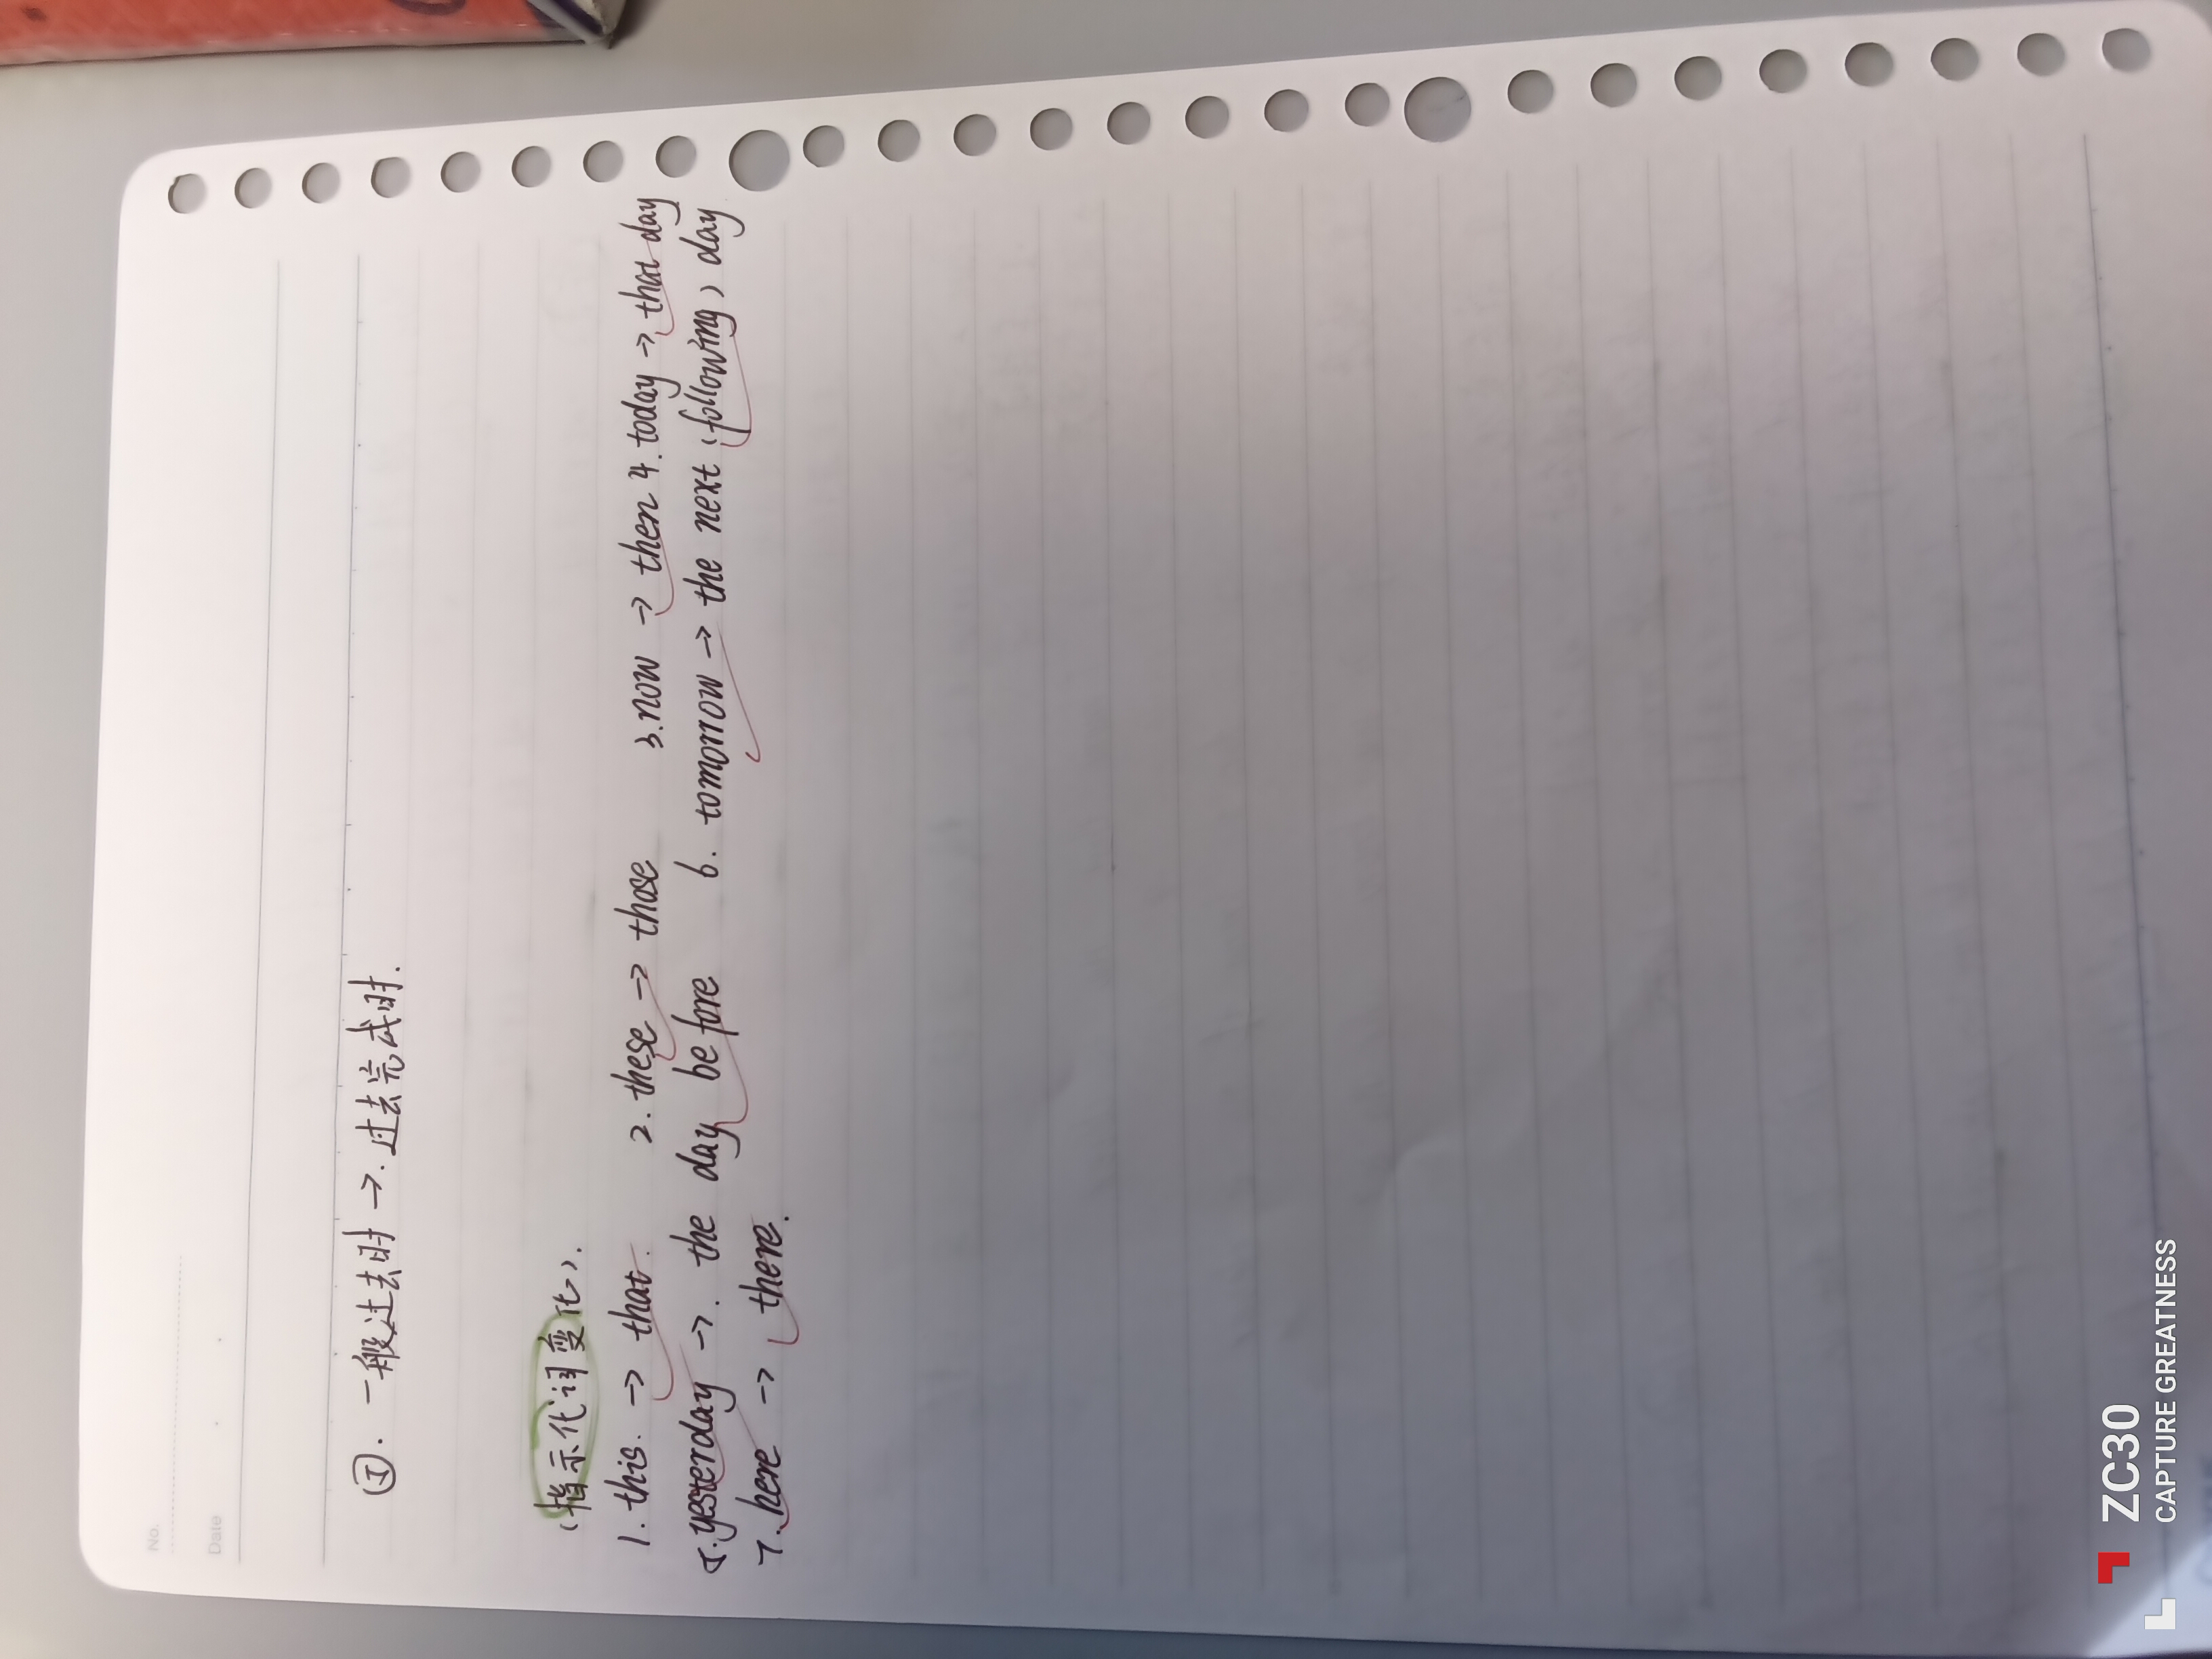 No.
Date
⑤. 一般过去时 → 过去完成时.
(指示代词变化).
1. this. → that. 2. these → those 3. now → then 4. today → that day
5. yesterday →. the day before 6. tomorrow → the next (following) day
7. here → there.
ZC30
CAPTURE GREATNESS